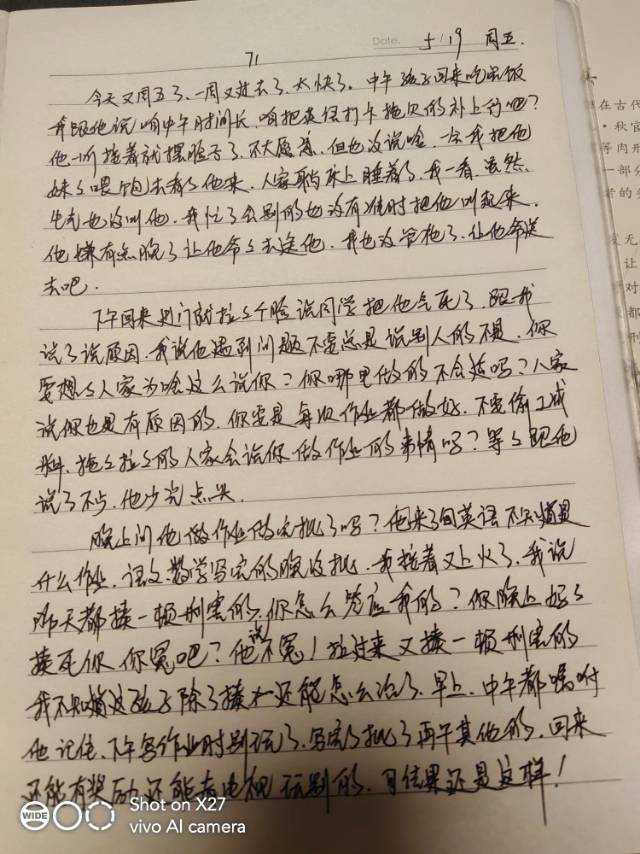 Date. 5/19 周五.
71
今天又周五了、一周又过去了、太快了。中午孩子回来吃完饭
我跟他说咱中午时间长、咱把英语打卡拖欠的补上行吧？
他一听接着就摆脸子了、不大愿意、但也没说啥、一会我把他
妹妹喂饱去看了他来、人家躺床上睡着了、我一看、虽然
生气也没叫他、我忙了会别的也没有准时把他叫起来、
他嫌有点晚了让他爷爷去送他、我也没管他了、让他爷送
去吧.
下午回来进门就拉了个脸说同学把他气死了、跟我
说了说原因、我说他遇到问题不要总是说别人的不是、你
要想想人家为啥这么说你？你哪里做的不合适吗？人家
说你也是有原因的、你要是每次作业都做好、不要偷工减
料、拖拖拉拉的人家会说你做作业的事情吗？等等跟他
说了不少、他少完点头.
晚上问他做作业做完批了吗？他来了句英语不知道是
什么作业、语文、数学写完的晚没批、我接着又上火了、我说
昨天都揍一顿利害的、你怎么答应我的？你晚上好好
揍死你你冤吧？他说不冤！拉过来又揍一顿利害的
我不知道这孩子除了揍还能怎么治了、早上、中午都嘱咐
他记住、下午写作业时别玩了、写完了批了再干其他的、回来
还能有奖励、还能看电视玩别的、可结果还是这样！
WIDE
Shot on X27
vivo AI camera
在古代
·秋官
等肉形
一部分
无
让
对
都